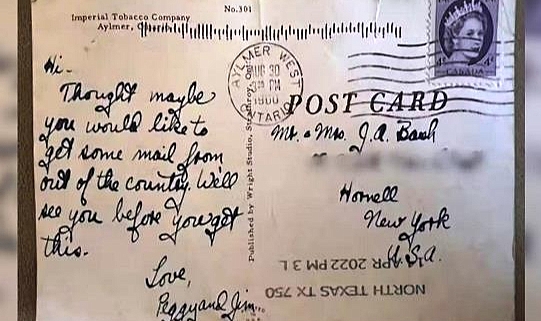 No.301
Imperial Tobacco Company
Aylmer,
AYLMER WEST
AUG 30
PM
ONTARIO
4¢ 4¢
CANADA
POST CARD
Hi-
Thought maybe
you would like to
get some mail from
out of the country. We'll
see you before you get
this.
Love,
Peggy and Jim
Published by Wright Studio, Strathroy, Ont.
Mr. & Mrs. J.A. Bash
Hornell
New York
U.S.A.
NORTH TEXAS TX 750
APR 2022 PM 3 L